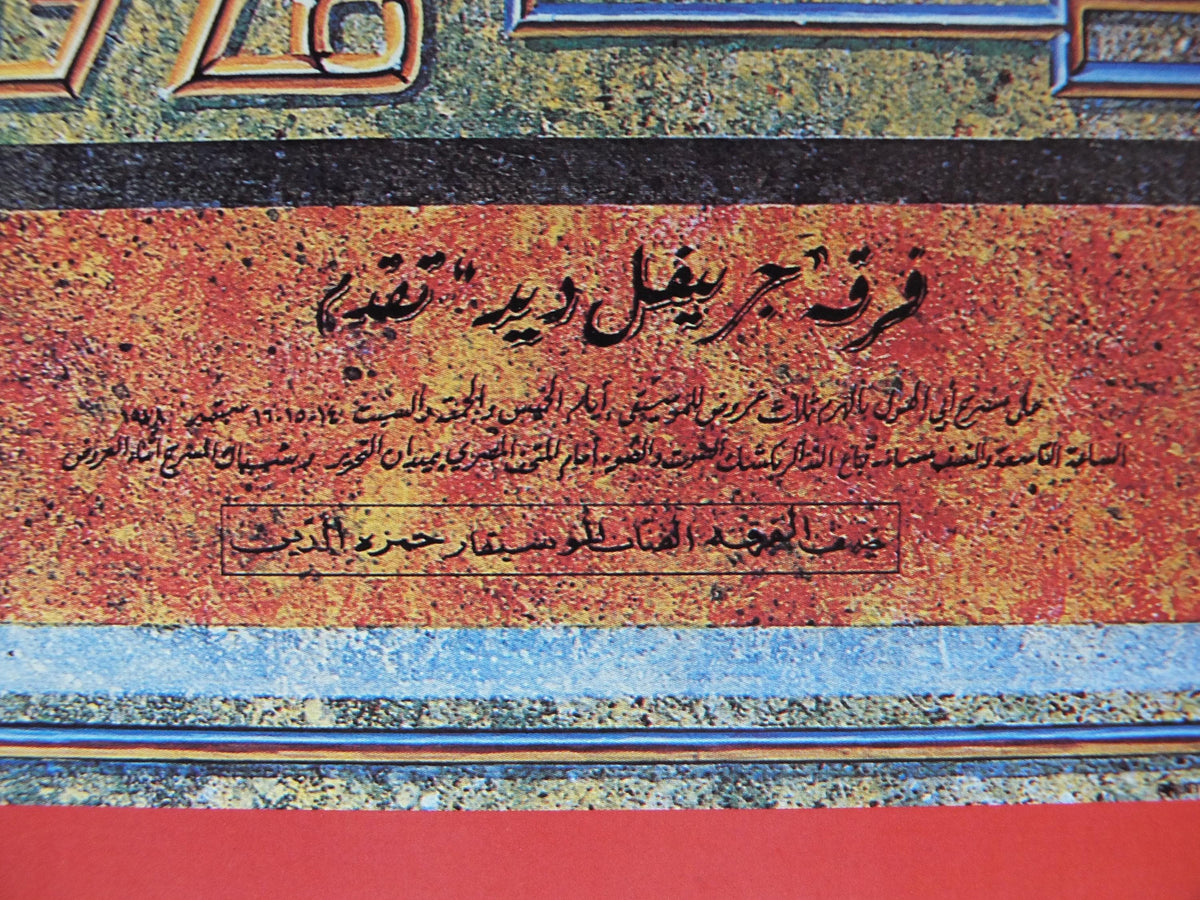 فرقه "جريفل ديد" تقدم
على مسرح أبي الهول بالهرم ثلاث عروض للموسيقى أيام الخميس والجمعة والسبت ١٤،١٥،١٦ سبتمبر ١٩٧٨
الساعة التاسعة والنصف مساء تباع التذاكر بكشك الصوت والضوء أمام المتحف المصري بميدان التحرير وبشباك المسرح أثناء العروض
ضيف الفرقه الفنان الموسيقار حمزه الدين